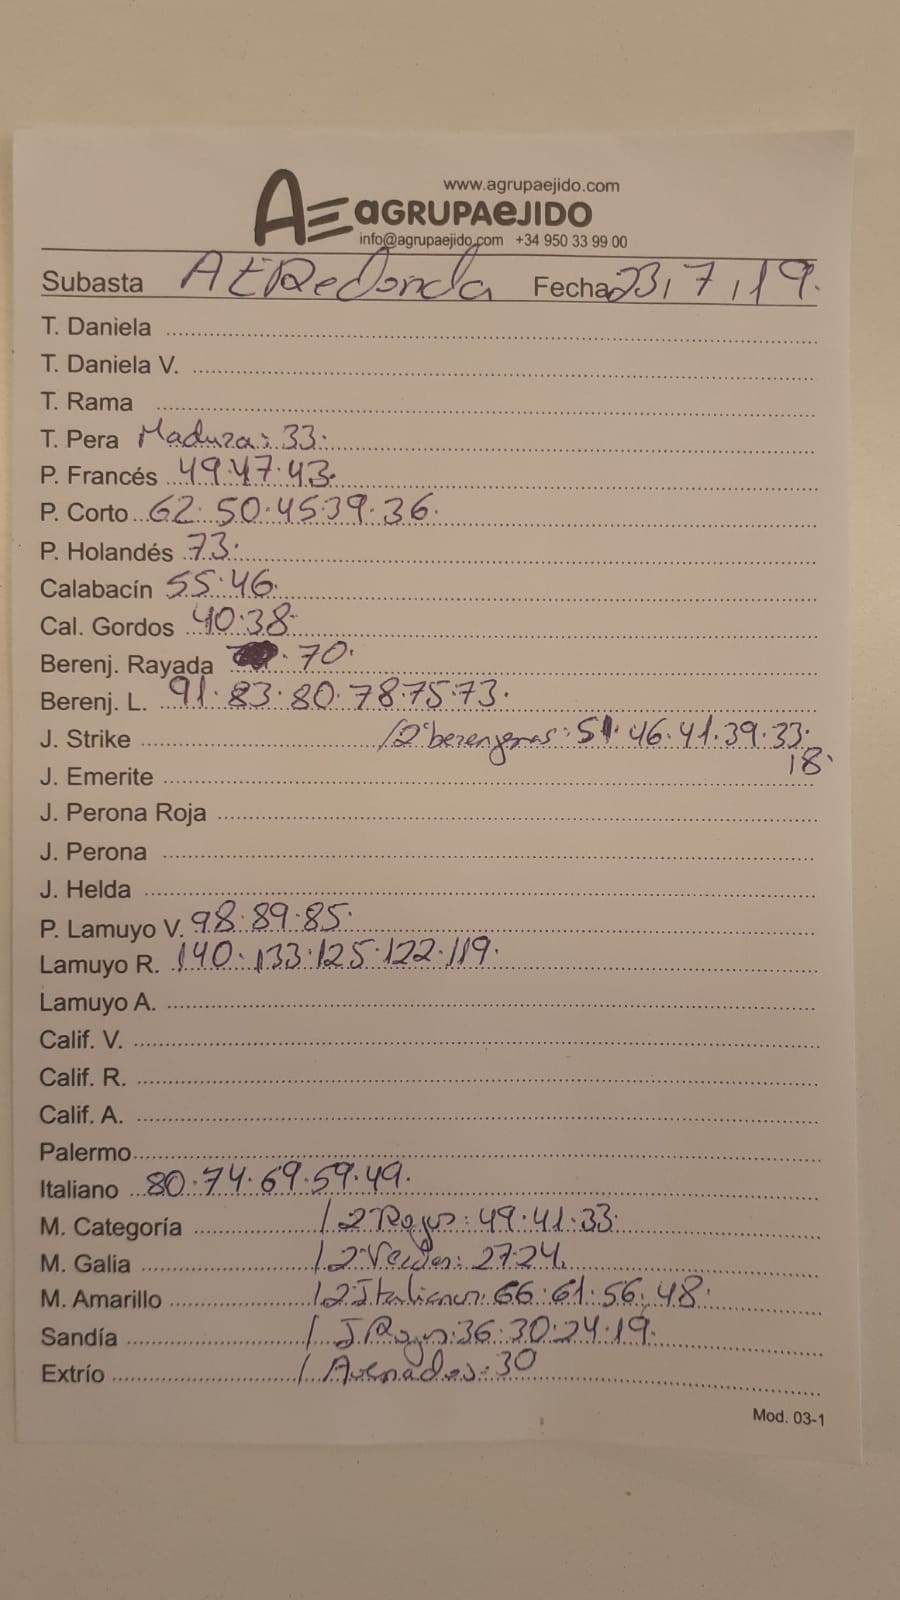 www.agrupaejido.com
AE aGRUPAeJIDO
info@agrupaejido.com +34 950 33 99 00
Subasta AERedonda Fecha 23, 7, 19.
T. Daniela
T. Daniela V.
T. Rama
T. Pera Madura: 33.
P. Francés 49.47.43.
P. Corto 62.50.45.39.36.
P. Holandés 73.
Calabacín 55.46.
Cal. Gordos 40.38.
Berenj. Rayada .70.
Berenj. L. 91.83.80.78.75.73.
J. Strike /2ªberenjenas: 51.46.41.39.33.
18.
J. Emerite
J. Perona Roja
J. Perona
J. Helda
P. Lamuyo V. 98.89.85.
Lamuyo R. 140.133.125.122.119.
Lamuyo A.
Calif. V.
Calif. R.
Calif. A.
Palermo
Italiano 80.74.69.59.49.
M. Categoría /2ªRojos: 49.41.33.
M. Galia /2ªVerdes: 27.24.
M. Amarillo /2ªItalianos: 66.61.56.48.
Sandía / J.Rojos: 36.30.24.19.
Extrío / Asurnados: 30
Mod. 03-1